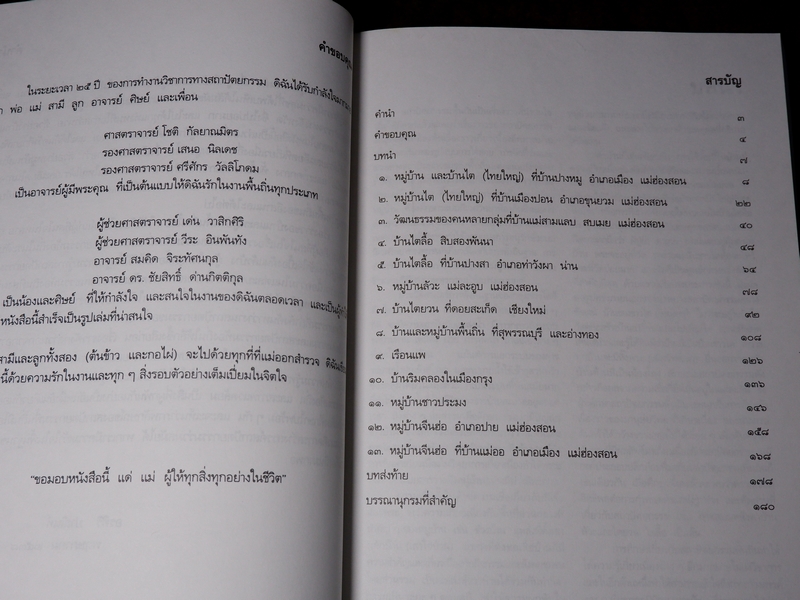 คำขอบคุณ
ในระยะเวลา ๒๕ ปี ของการทำงานวิชาการทางสถาปัตยกรรม ดิฉันได้รับกำลังใจ
พ่อ แม่ สามี ลูก อาจารย์ ศิษย์ และเพื่อน
ศาสตราจารย์ โชติ กัลยาณมิตร
รองศาสตราจารย์ เสนอ นิลเดช
รองศาสตราจารย์ ศรีศักร วัลลิโภดม
เป็นอาจารย์ผู้มีพระคุณ ที่เป็นต้นแบบให้ดิฉันรักในงานพื้นถิ่นทุกประเภท
ผู้ช่วยศาสตราจารย์ เด่น วาสิกศิริ
ผู้ช่วยศาสตราจารย์ วีระ อินพันทัง
อาจารย์ สมคิด จิระทัศนกุล
อาจารย์ ดร. ชัยสิทธิ์ ด่านกิตติกุล
เป็นน้องและศิษย์ ที่ให้กำลังใจ และสนใจในงานของดิฉันตลอดเวลา และเป็น
หนังสือนี้สำเร็จเป็นรูปเล่มที่น่าสนใจ
สามีและลูกทั้งสอง (ต้นข้าว และกอไผ่) จะไปด้วยทุกที่ที่แม่ออกสำรวจ
นี้ด้วยความรักในงานและทุก ๆ สิ่งรอบตัวอย่างเต็มเปี่ยมในจิตใจ
"ขอมอบหนังสือนี้ แด่ แม่ ผู้ให้ทุกสิ่งทุกอย่างในชีวิต"
สารบัญ
คำนำ ๓
คำขอบคุณ ๔
บทนำ ๗
๑. หมู่บ้าน และบ้านไต (ไทยใหญ่) ที่บ้านปางหมู อำเภอเมือง แม่ฮ่องสอน ๘
๒. หมู่บ้านไต (ไทยใหญ่) ที่บ้านเมืองปอน อำเภอขุนยวม แม่ฮ่องสอน ๒๒
๓. วัฒนธรรมของคนหลายกลุ่มที่บ้านแม่สามแลบ สบเมย แม่ฮ่องสอน ๔๐
๔. บ้านไตลื้อ สิบสองพันนา ๔๘
๕. บ้านไตลื้อ ที่บ้านปางสา อำเภอท่าวังผา น่าน ๖๔
๖. หมู่บ้านลัวะ แม่ละอูบ แม่ฮ่องสอน ๗๘
๗. บ้านไตยวน ที่ดอยสะเก็ด เชียงใหม่ ๙๒
๘. บ้านและหมู่บ้านพื้นถิ่น ที่สุพรรณบุรี และอ่างทอง ๑๐๘
๙. เรือนแพ ๑๒๖
๑๐. บ้านริมคลองในเมืองกรุง ๑๓๖
๑๑. หมู่บ้านชาวประมง ๑๔๖
๑๒. หมู่บ้านจีนฮ่อ อำเภอปาย แม่ฮ่องสอน ๑๕๘
๑๓. หมู่บ้านจีนฮ่อ ที่บ้านแม่ออ อำเภอเมือง แม่ฮ่องสอน ๑๖๘
บทส่งท้าย ๑๗๘
บรรณานุกรมที่สำคัญ ๑๘๐